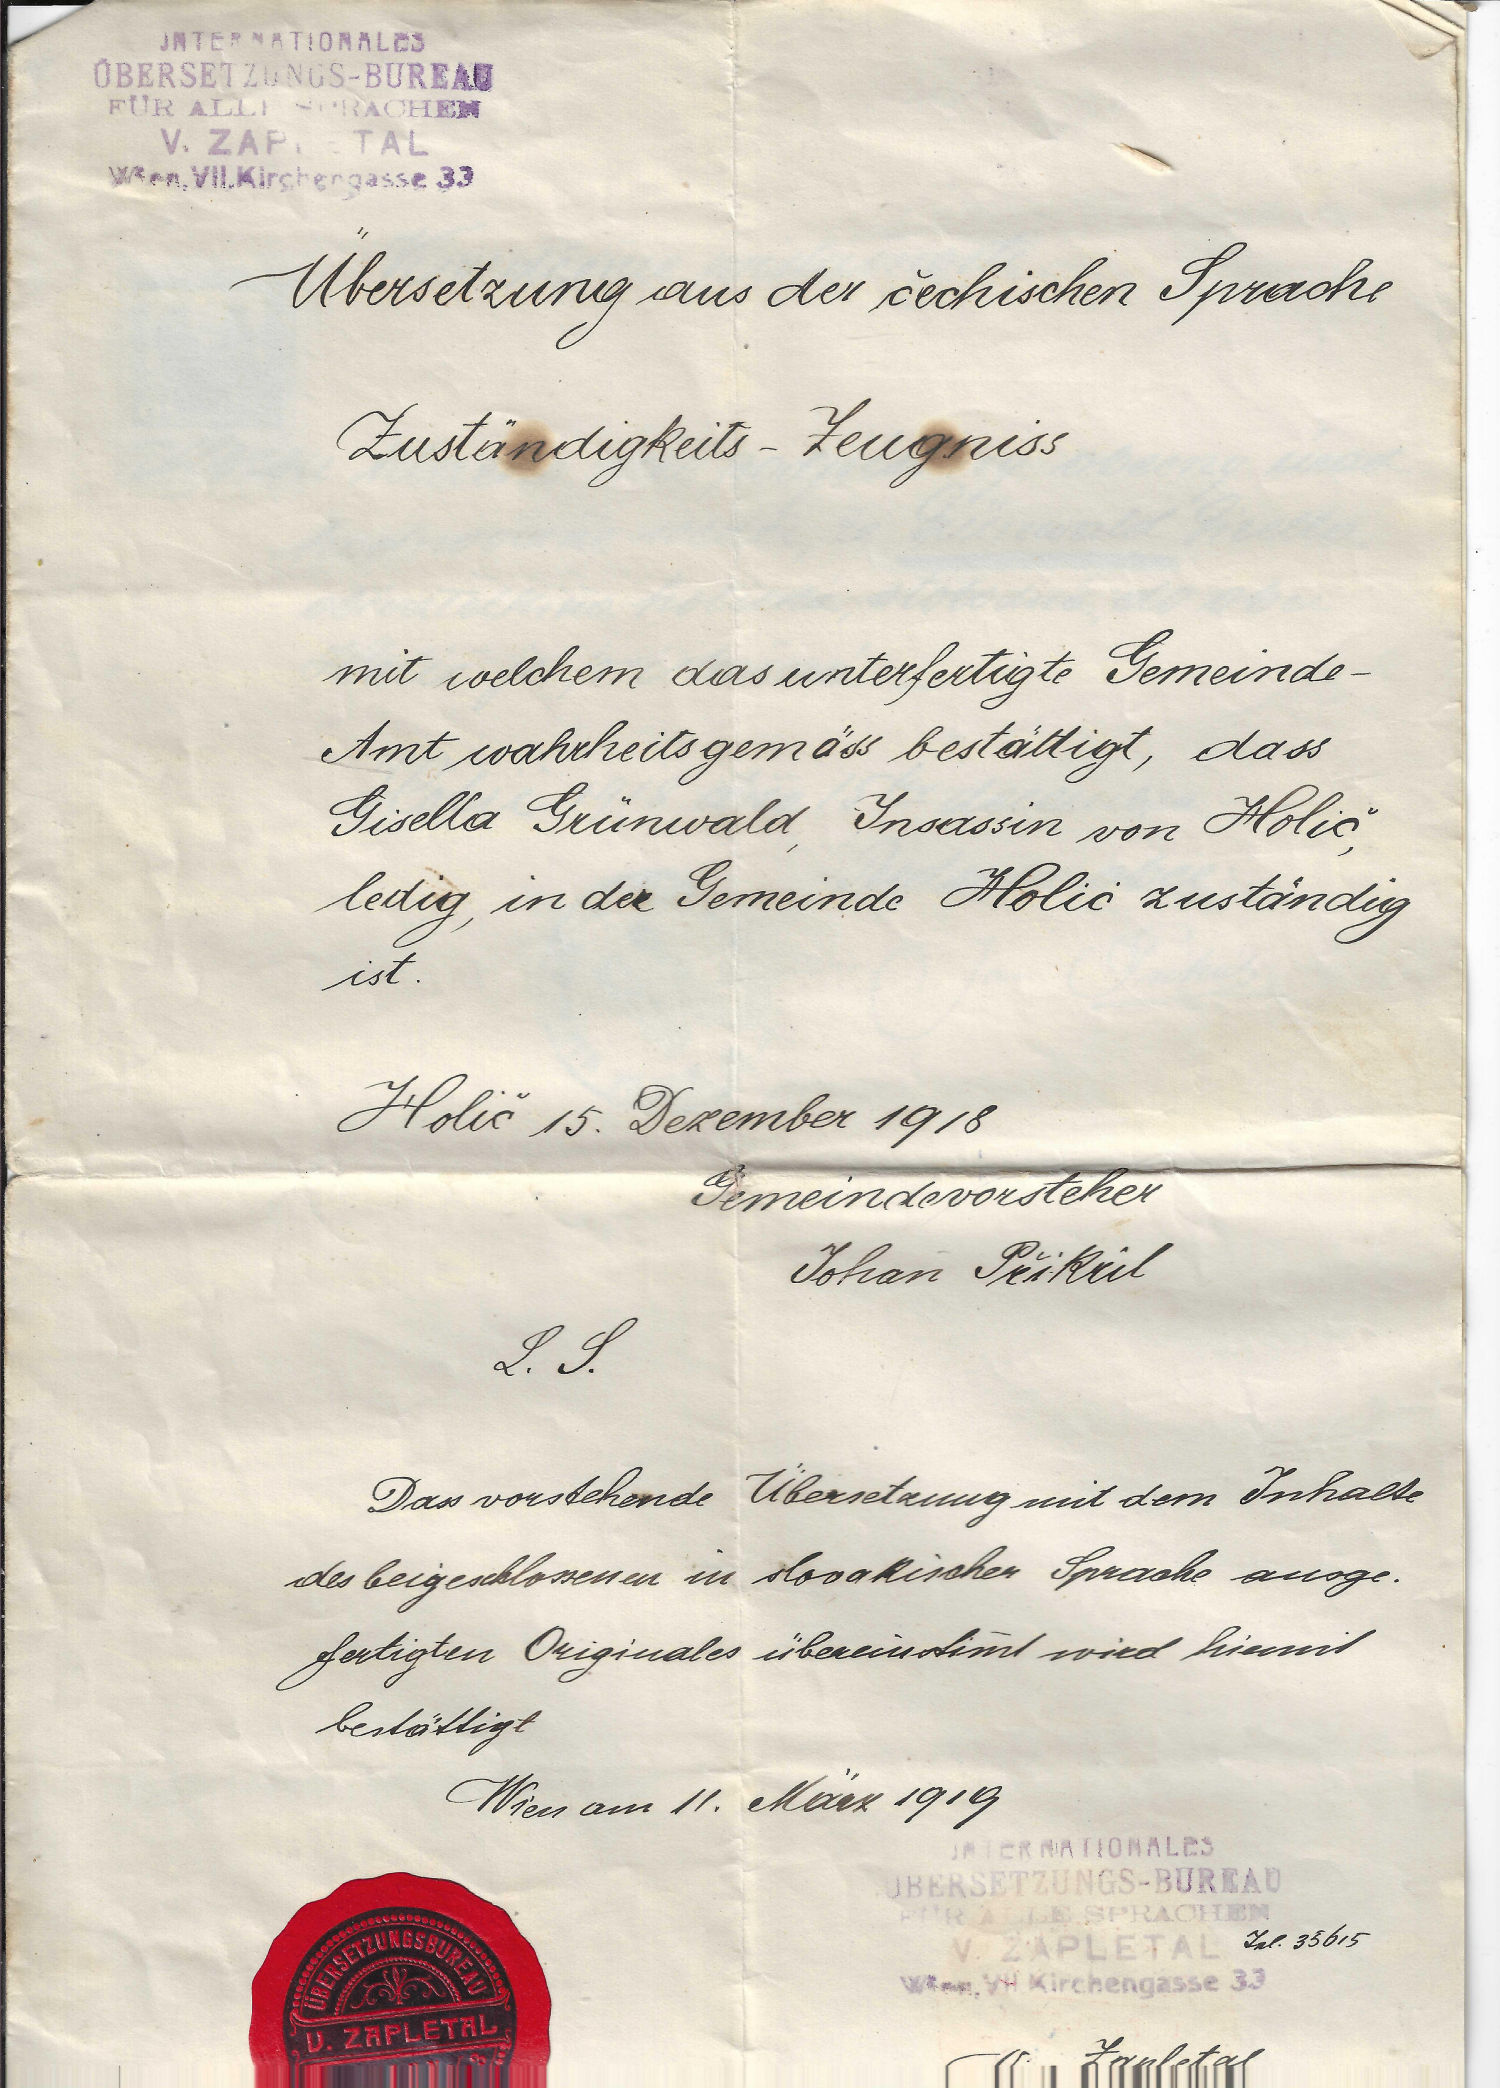 INTERNATIONALES
ÜBERSETZUNGS-BUREAU
FÜR ALLE SPRACHEN
V. ZAPLETAL
Wien, VII. Kirchengasse 33
Übersetzung aus der čechischen Sprache
Zuständigkeits - Zeugniss
mit welchem das unterfertigte Gemeinde-
Amt wahrheitsgemäss bestättigt, dass
Gisella Grünwald, Insassin von Holič,
ledig, in der Gemeinde Holič zuständig
ist.
Holič 15. Dezember 1918
Gemeindevorsteher
Johan Přikril
L. S.
Dass vorstehende Übersetzung mit dem Inhalte
des beigeschlossenen in slovakischer Sprache ausge-
fertigten Originales übereinstim̄t wird hiemit
bestättigt
Wien am 11. März 1919
INTERNATIONALES
ÜBERSETZUNGS-BUREAU
FÜR ALLE SPRACHEN
V. ZAPLETAL
Wien, VII. Kirchengasse 33
Zal. 35615
ÜBERSETZUNGSBUREAU
V. ZAPLETAL
V. Zapletal